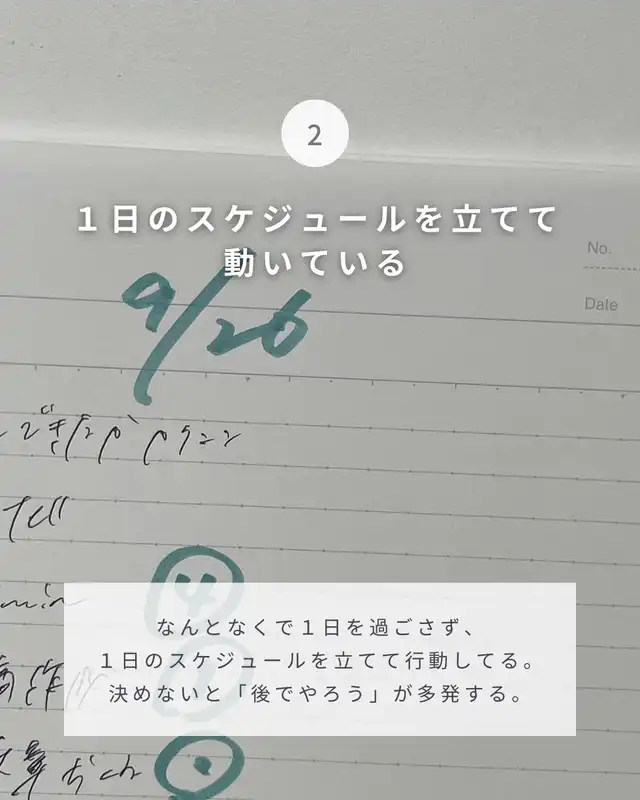 2
１日のスケジュールを立てて
動いている
No.
Date
9/26
min
④
なんとなくで１日を過ごさず、
１日のスケジュールを立てて行動してる。
決めないと「後でやろう」が多発する。